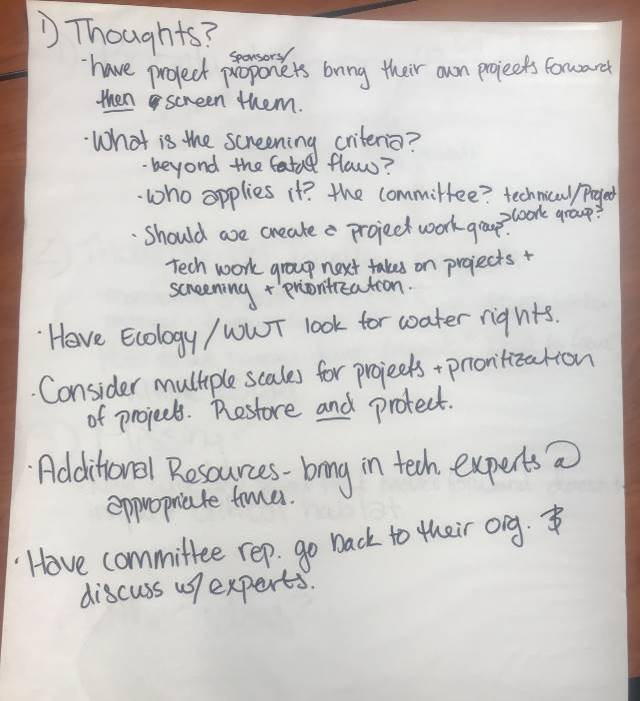 1) Thoughts?
- have project sponsors/ proponets bring their own projects forward
then screen them.
- What is the screening criteria?
- beyond the fatal flaw?
- who applies it? the committee? technical/Project
work group?
- Should we create a project work group?
Tech work group next takes on projects +
screening + prioritization.
· Have Ecology/WWT look for water rights.
· Consider multiple scales for projects + prioritization
of projects. Restore and protect.
· Additional Resources - bring in tech. experts @
appropriate times.
· Have committee rep. go back to their org. &
discuss w/ experts.